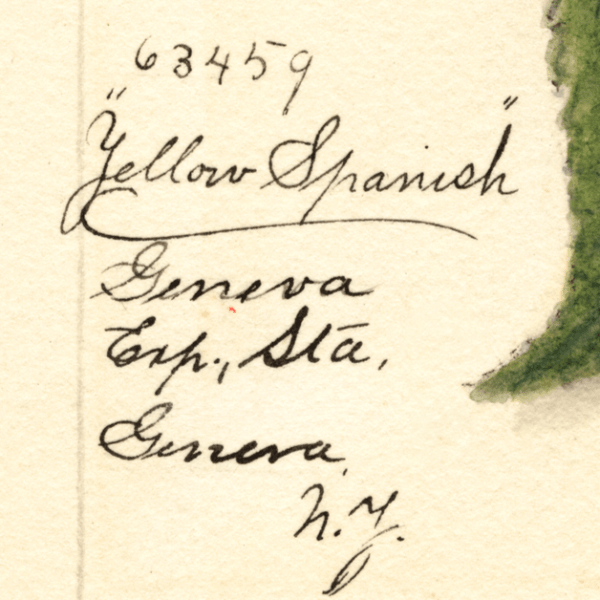 63459
"Yellow Spanish"
Geneva
Exp., Sta,
Geneva,
N.Y.